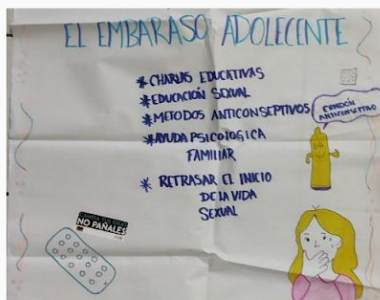 EL EMBARASO ADOLECENTE
* CHARLAS EDUCATIVAS
* EDUCACIÓN SEXUAL
* METODOS ANTICONSEPTIVOS
* AYUDA PSICOLOGICA
FAMILIAR
* RETRASAR EL INICIO
DE LA VIDA
SEXUAL
CONDÓN
ANTICONSEPTIVO
NO PAÑALES